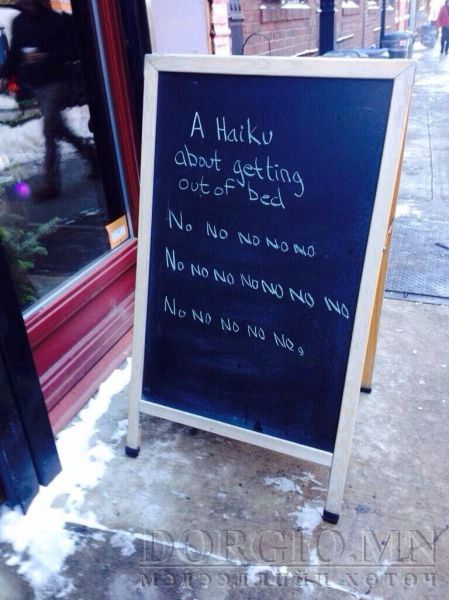 A Haiku
about getting
out of bed
No No No No No
No No No No No No No
No No No No No.
DORGIO.MN
МЭДЭЭЛЛИЙН ХӨТӨЧ